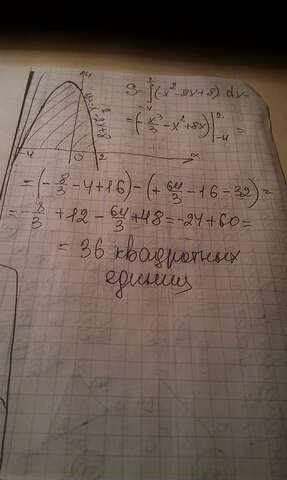 y
y=-x²-2x+8
-4 0 2 x
S=∫₋₄²(-x²-2x+8) dx=
=(-x³/3-x²+8x)|₋₄²=
=(-8/3-4+16)-(+64/3-16-32)=
=-8/3+12-64/3+48=-24+60=
=36 квадратных
единиц